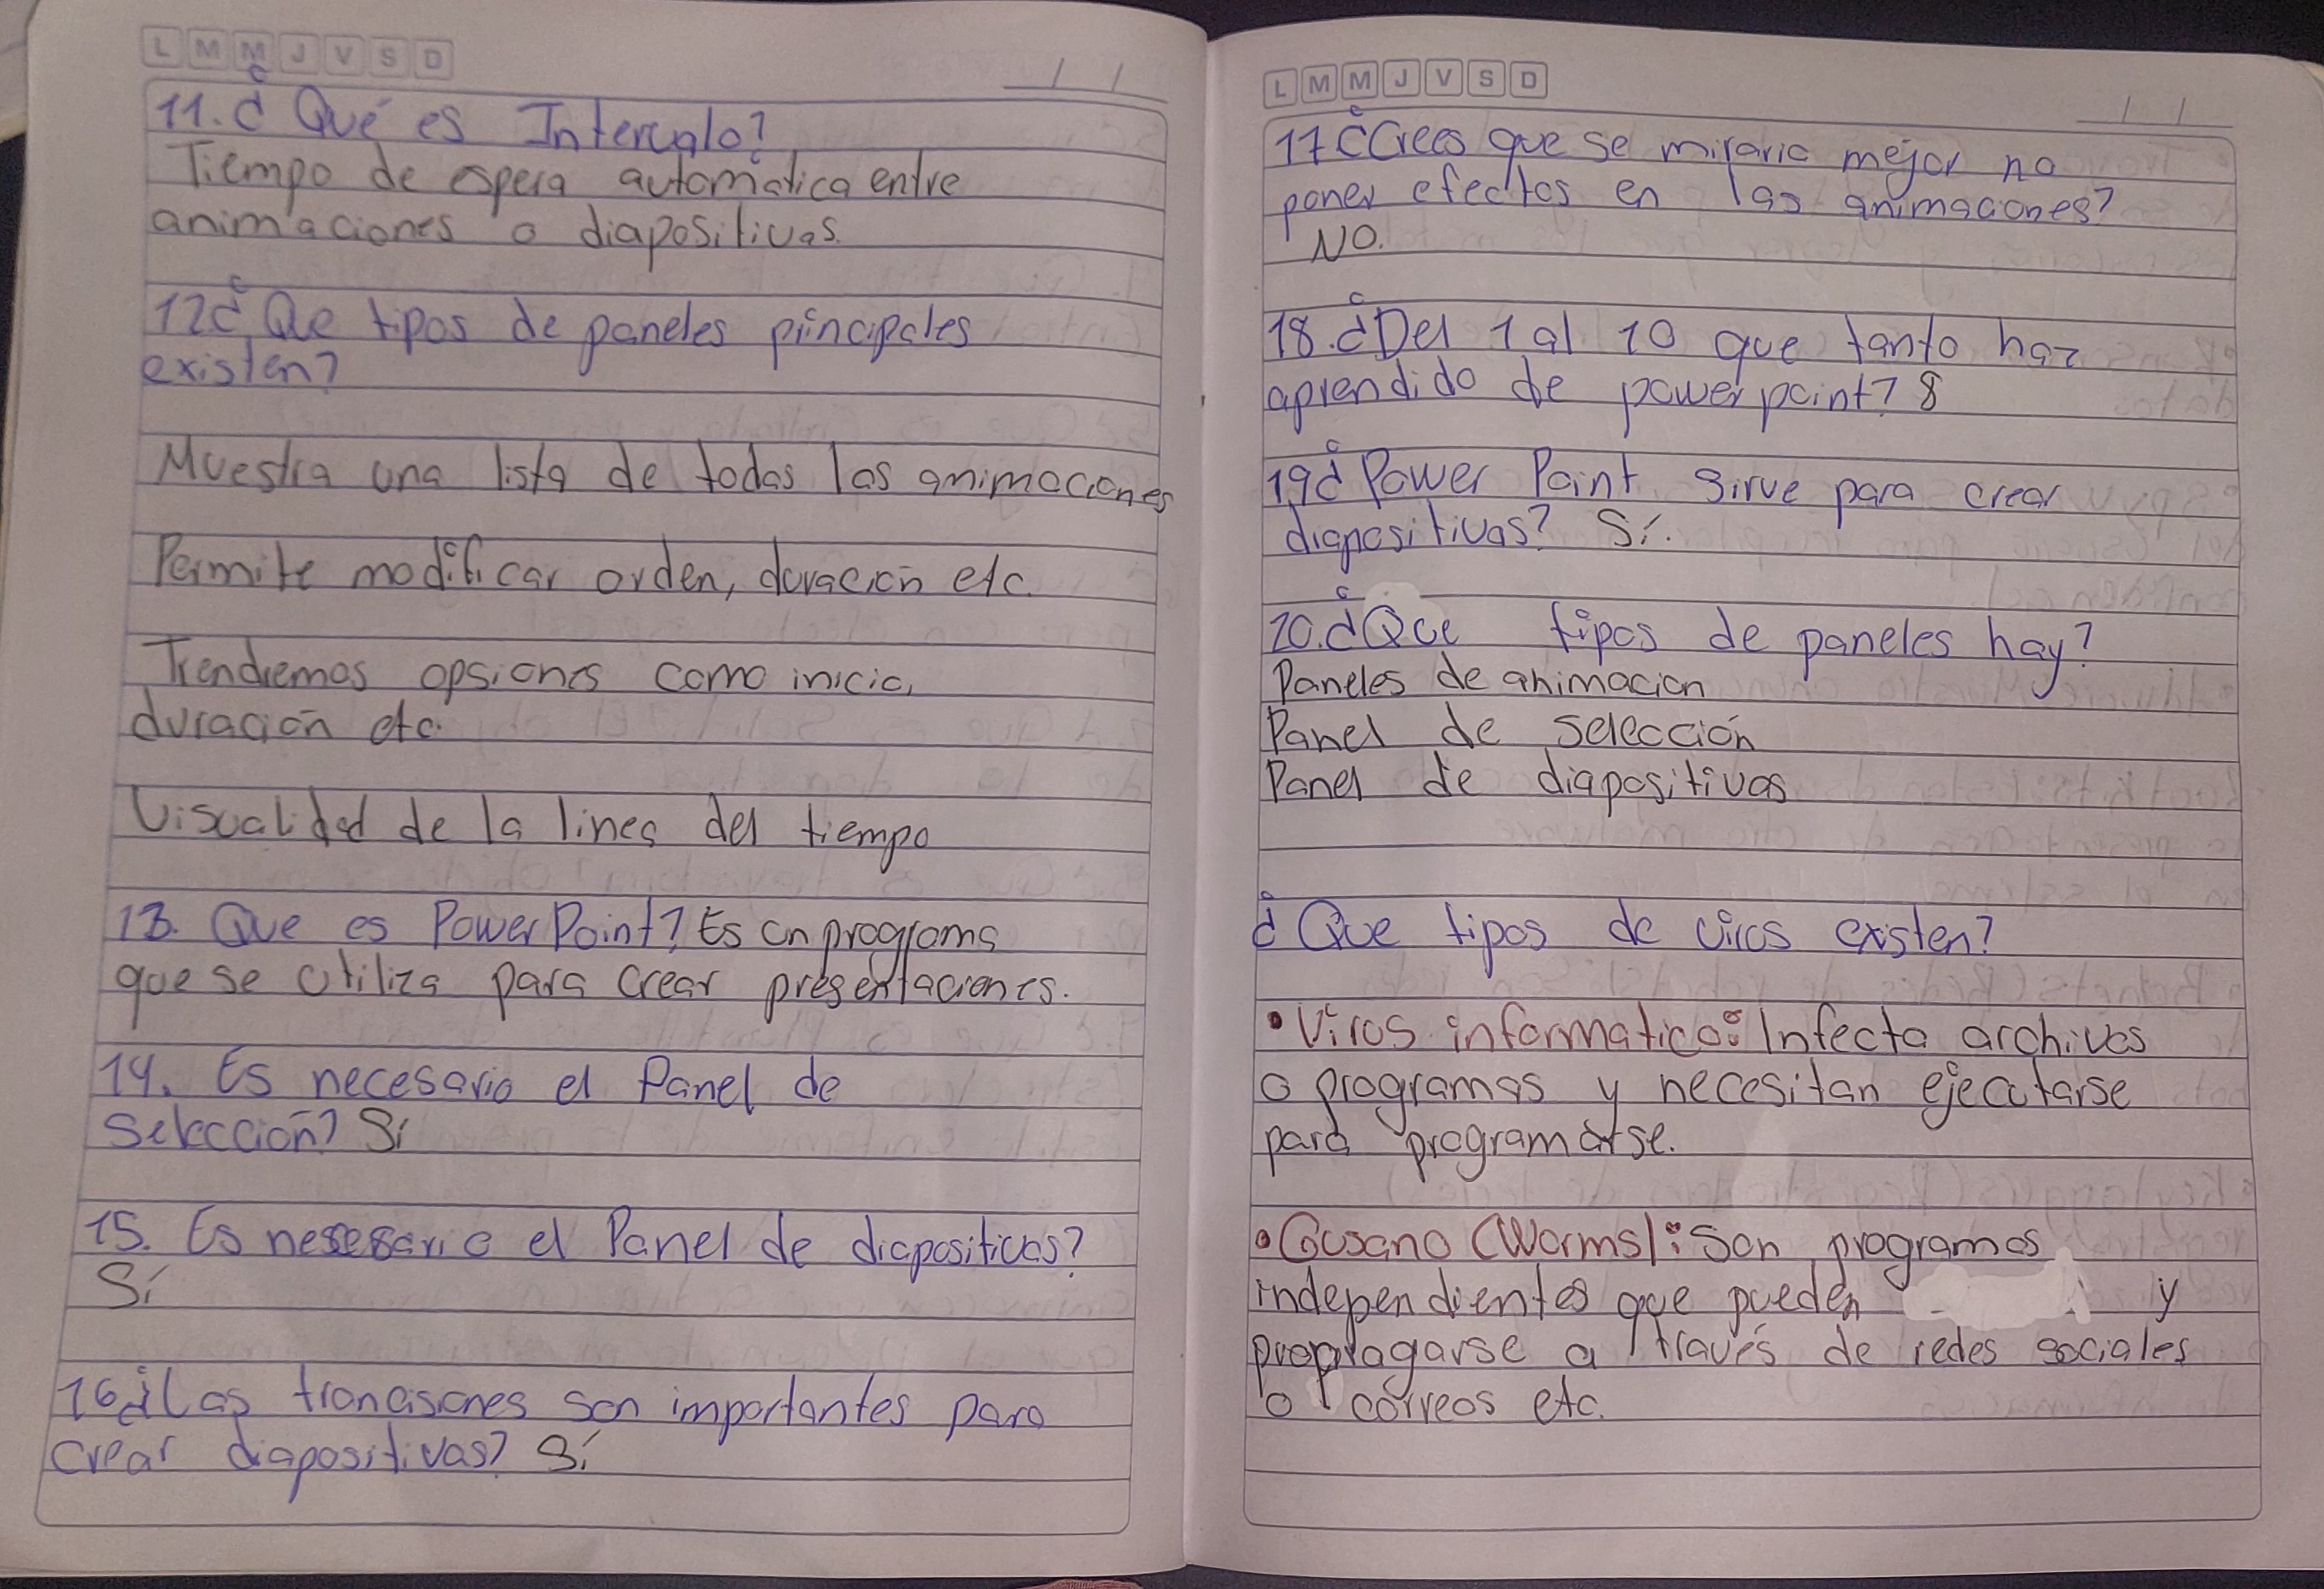 L M M J V S D
11. ¿Qué es Intervalo?
Tiempo de espera automática entre
animaciones o diapositivas.
12¿Que tipos de paneles principales
existen?
Muestra una lista de todas las animaciones
Permite modificar orden, duración etc.
Trendremos opsiones como inicio,
duración etc.
Visualidad de la linea del tiempo
13. Que es PowerPoint? Es un programa
que se utiliza para crear presentaciones.
14. Es necesario el Panel de
Selección? Sí
15. Es nesesario el Panel de diapositivas?
Sí
16¿Las trancisiones son importantes para
crear diapositivas? Sí
L M M J V S D
17¿Crees que se miraria mejor no
poner efectos en las animaciones?
NO.
18.¿Del 1 al 10 que tanto haz
aprendido de powerpoint? 8
19¿Power Point sirve para crear
diapositivas? Sí.
20.¿Que tipos de paneles hay?
Paneles de animacion
Panel de selección
Panel de diapositivas
¿Que tipos de virus existen?
• Virus informatico: Infecta archivos
o programas y necesitan ejecutarse
para programarse.
• Gusano (Worms): Son programas
independientes que pueden y
proplagarse a través de redes sociales
o correos etc.